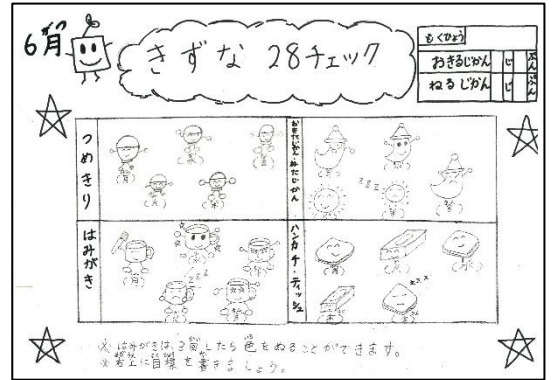 6月
がつ
きずな 28チェック
もくひょう
おきるじかん じ ふん
ねるじかん じ ぷん
つめきり
(月) (火) (木) (金)
おきたじかん・ねたじかん
はみがき
(月) (火) (水) (木) (金)
ハンカチ・ティッシュ
(月) (火) (水) (木) (金)
※ はみがきは、3回したら色をぬることができます。
※ 右上に目標を書きましょう。